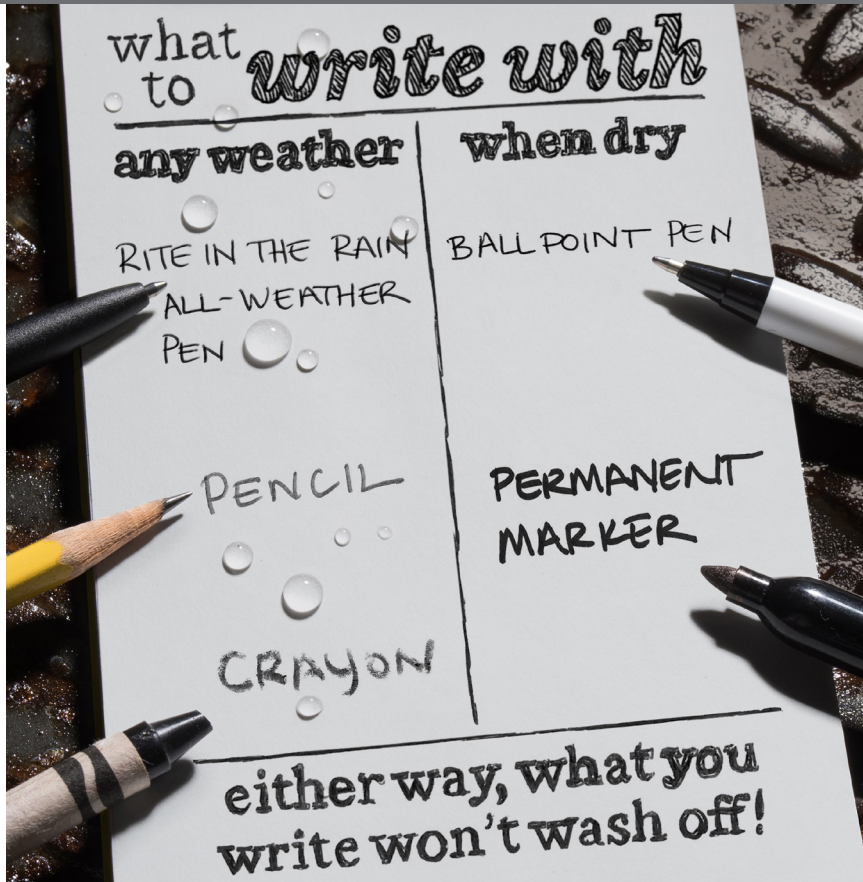 what
to write with
any weather
RITE IN THE RAIN
ALL-WEATHER
PEN
PENCIL
CRAYON
when dry
BALLPOINT PEN
PERMANENT
MARKER
either way, what you
write won't wash off!